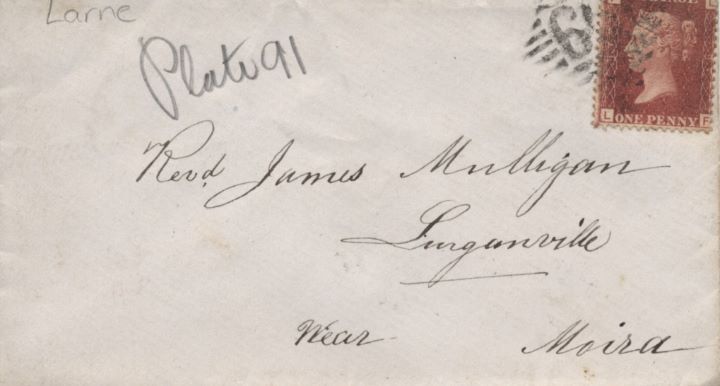 Larne
Plate 91
Revd. James Mulligan
Lurganville
Near Moira
ONE PENNY
L